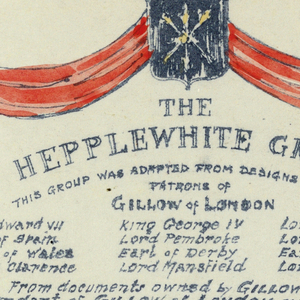 THE
HEPPLEWHITE
THIS GROUP WAS ADAPTED FROM DESIGNS
PATRONS of
GILLOW of LONDON
King George IV
of Spain Lord Pembroke
of Wales Earl of Derby
Clarence Lord Mansfield
From documents owned by GILLOW